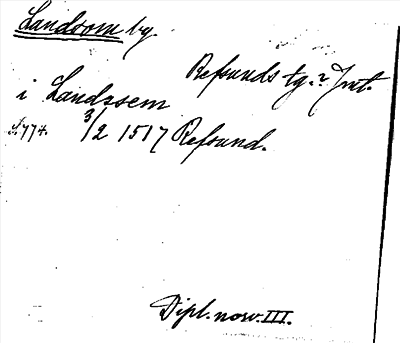 Landsom by.
Refsunds tg.? Jmt.
i Landssem
s. 774. 3/2 1517 Refsund.
Dipl. norv. III.